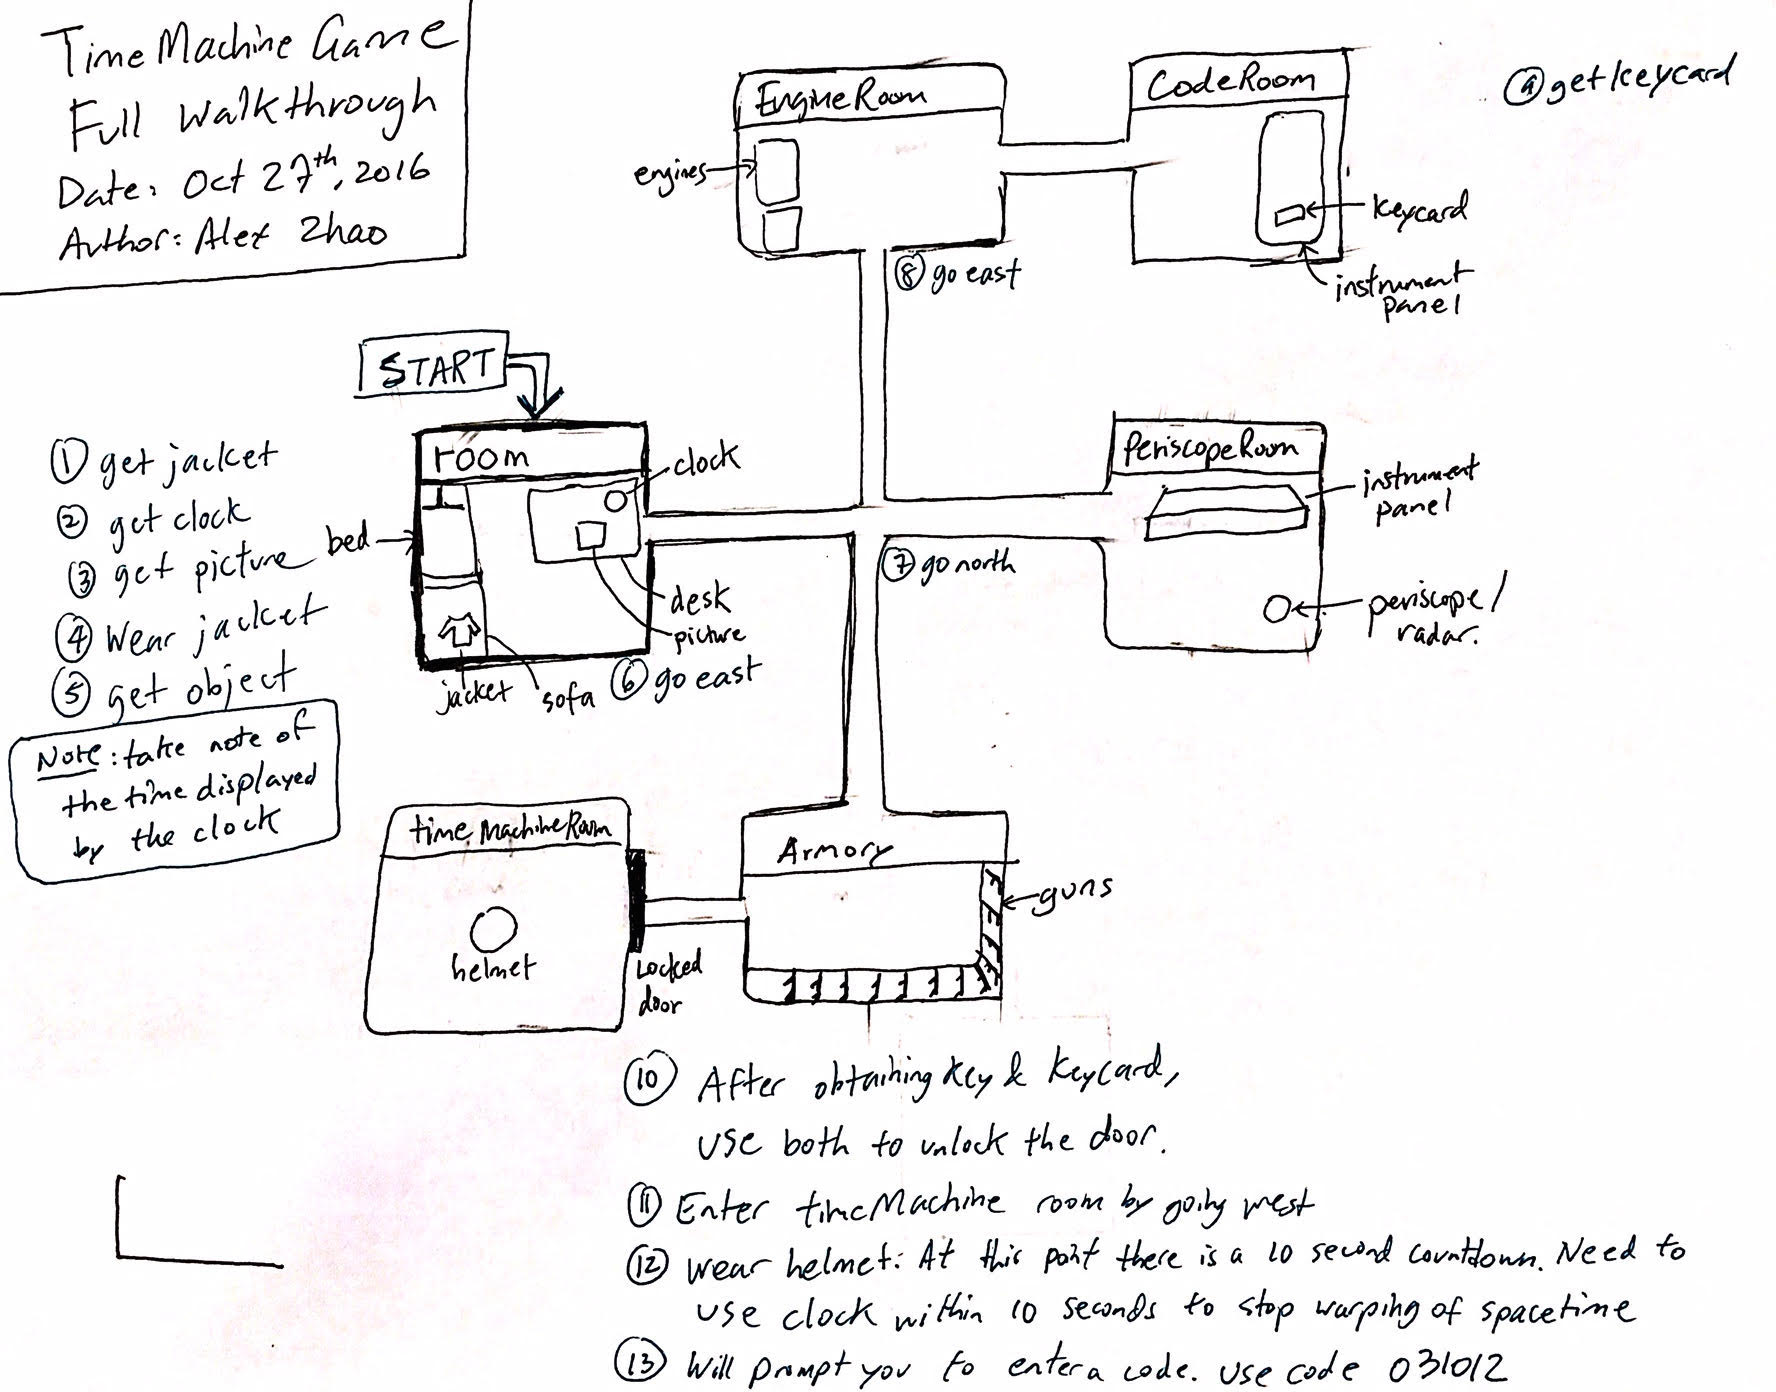 Time Machine Game
Full Walkthrough
Date: Oct 27th, 2016
Author: Alex Zhao
EngineRoom
engines
CodeRoom
keycard
instrument
panel
⑨ get keycard
⑧ go east
START
room
clock
bed
desk
picture
jacket
sofa
① get jacket
② get clock
③ get picture
④ Wear jacket
⑤ get object
⑥ go east
Note: take note of
the time displayed
by the clock
PeriscopeRoom
instrument
panel
periscope/
radar.
⑦ go north
time MachineRoom
helmet
Locked
door
Armory
guns
⑩ After obtaining key & keycard,
use both to unlock the door.
⑪ Enter timeMachine room by going west
⑫ wear helmet: At this point there is a 10 second countdown. Need to
use clock within 10 seconds to stop warping of spacetime
⑬ Will prompt you to enter a code. use code 031012